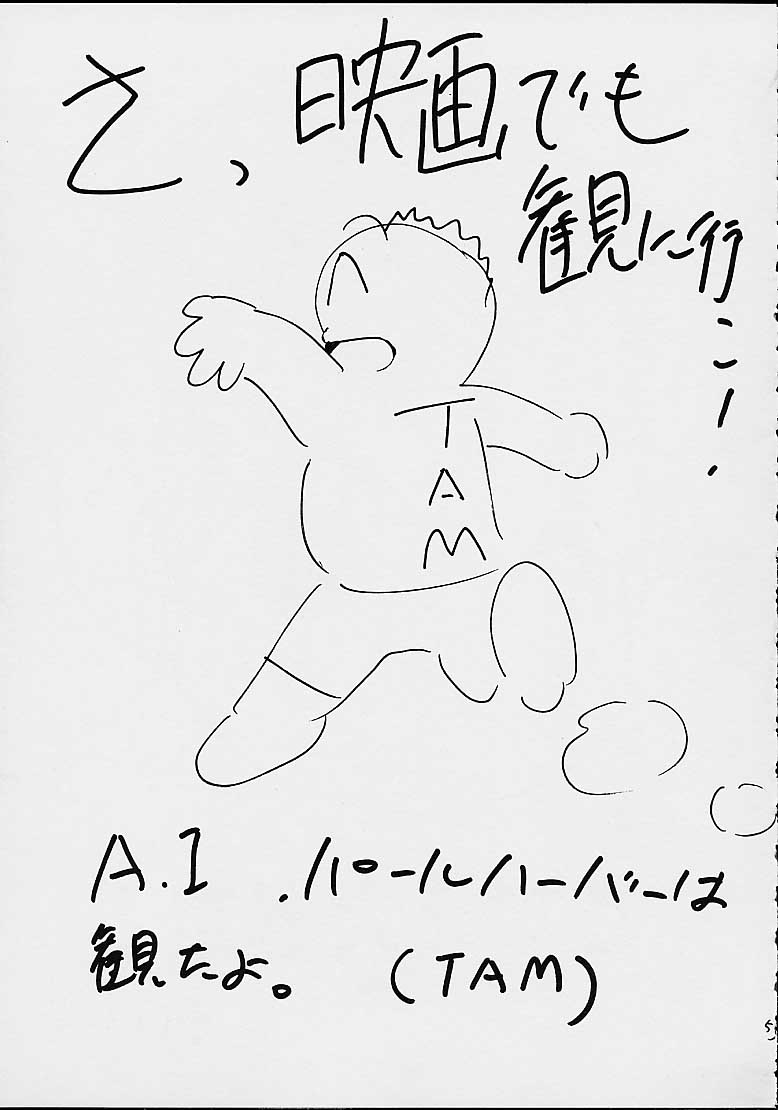 さ、映画でも
観に行こー!
TAM
A.I.パールハーバーは
観たよ。 (TAM)